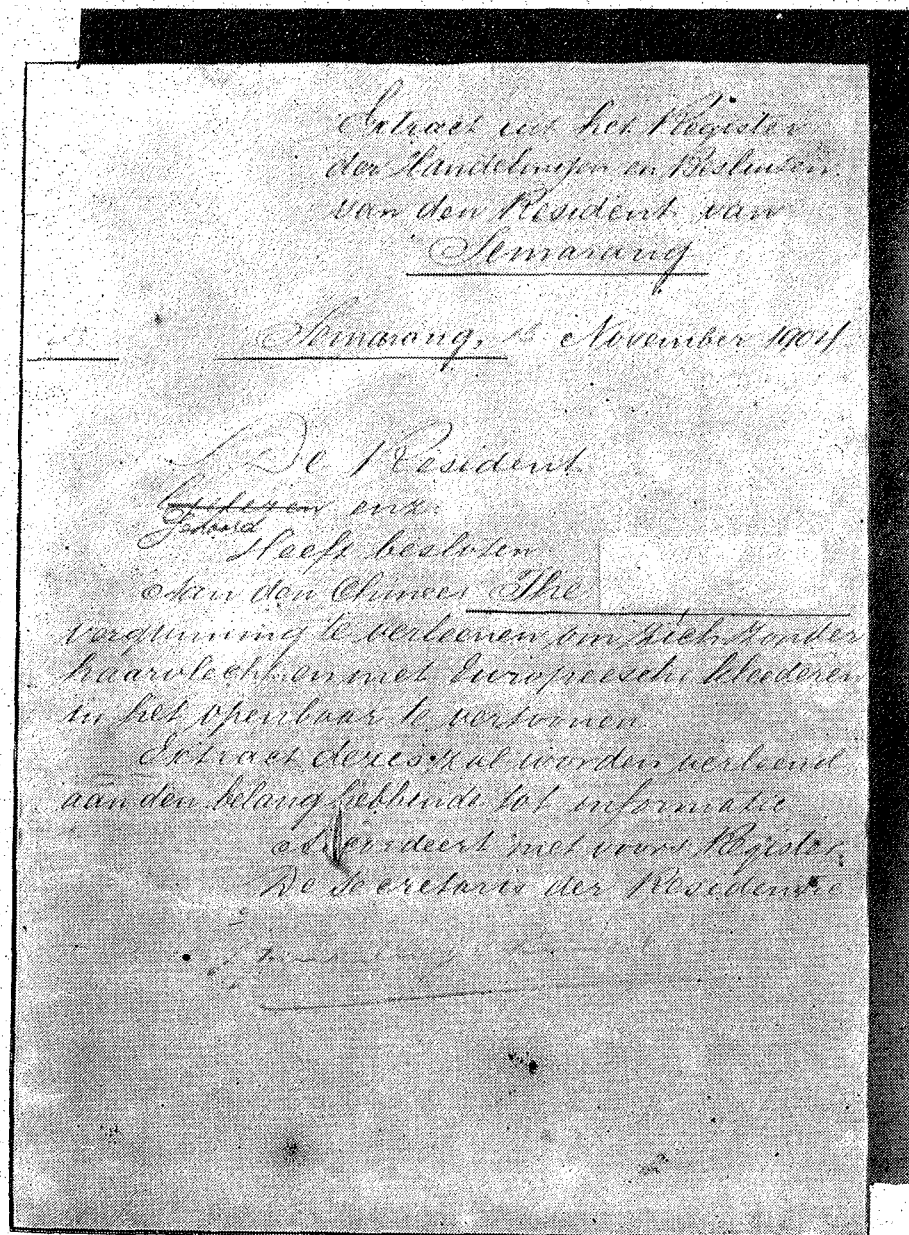 Extract uit het Register
der Handelingen en Besluiten
van den Resident van
Semarang
Semarang, November 1904
De Resident
Gelezen enz.
Gehoord
Heeft besloten
Aan den Chinees The
vergunning te verleenen om zich zonder
haarvlecht en met Europeesche kleederen
in het openbaar te vertoonen.
Extract dezes zal worden verleend
aan den belanghebbende tot informatie
Accordeert met voors. Register
De Secretaris der Residentie